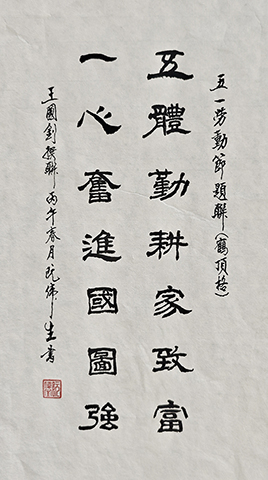 五一劳動節題聯(鶴頂格)
五體勤耕家致富
一心奮進國圖強
王國釗撰聯丙午春月阮偉生書